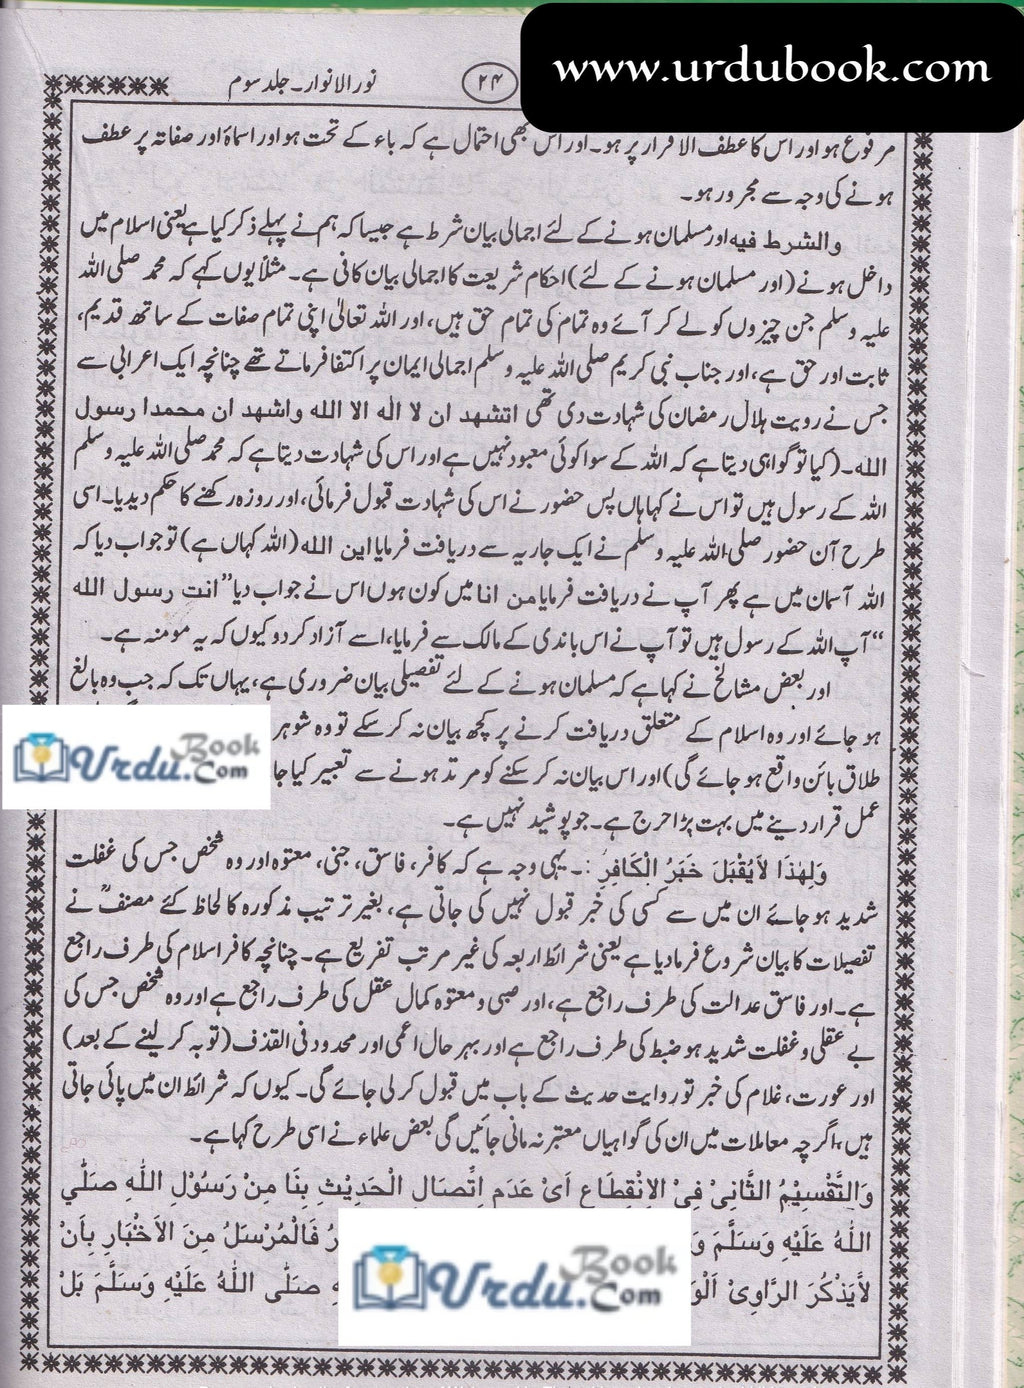 www.urdubook.com
نور الانوار۔ جلد سوم
۲۴
مرفوع ہو اور اس کا عطف الاقرار پر ہو۔ اور اس بھی احتمال ہے کہ باء کے تحت ہو اور اسماۂ اور صفاتہ پر عطف
ہونے کی وجہ سے مجرور ہو۔
والشرط فیہ اور مسلمان ہونے کے لئے اجمالی بیان شرط ہے جیسا کہ ہم نے پہلے ذکر کیا ہے یعنی اسلام میں
داخل ہونے (اور مسلمان ہونے کے لئے) احکام شریعت کا اجمالی بیان کافی ہے۔ مثلاً یوں کہے کہ محمد صلی اللہ
علیہ وسلم جن چیزوں کو لے کر آئے وہ تمام کی تمام حق ہیں، اور اللہ تعالیٰ اپنی تمام صفات کے ساتھ قدیم،
ثابت اور حق ہے، اور جناب نبی کریم صلی اللہ علیہ وسلم اجمالی ایمان پر اکتفا فرماتے تھے چنانچہ ایک اعرابی سے
جس نے رویت ہلال رمضان کی شہادت دی تھی اتشهد ان لا اله الا الله واشهد ان محمدا رسول
الله۔ (کیا تو گواہی دیتا ہے کہ اللہ کے سوا کوئی معبود نہیں ہے اور اس کی شہادت دیتا ہے کہ محمد صلی اللہ علیہ وسلم
اللہ کے رسول ہیں تو اس نے کہا ہاں پس حضور نے اس کی شہادت قبول فرمائی، اور روزہ رکھنے کا حکم دیدیا۔ اسی
طرح آن حضور صلی اللہ علیہ وسلم نے ایک جاریہ سے دریافت فرمایا این الله (اللہ کہاں ہے) تو جواب دیا کہ
اللہ آسمان میں ہے پھر آپ نے دریافت فرمایا من انا میں کون ہوں اس نے جواب دیا ”انت رسول الله
“ آپ اللہ کے رسول ہیں تو آپ نے اس باندی کے مالک سے فرمایا، اسے آزاد کردو کیوں کہ یہ مومنہ ہے۔
اور بعض مشائخ نے کہا ہے کہ مسلمان ہونے کے لئے تفصیلی بیان ضروری ہے، یہاں تک کہ جب وہ بالغ
ہو جائے اور وہ اسلام کے متعلق دریافت کرنے پر کچھ بیان نہ کر سکے تو وہ شوہر
طلاق بائن واقع ہو جائے گی) اور اس بیان نہ کر سکنے کو مرتد ہونے سے تعبیر کیا جا
Urdu Book .Com
عمل قرار دینے میں بہت بڑا حرج ہے۔ جو پوشید نہیں ہے۔
وَلِهٰذَا لاَيُقْبَلَ خَبَرُ الْكَافِرِ :۔ یہی وجہ ہے کہ کافر، فاسق، جنی، معتوہ اور وہ شخص جس کی غفلت
شدید ہو جائے ان میں سے کسی کی خبر قبول نہیں کی جاتی ہے، بغیر ترتیب مذکورہ کا لحاظ کئے مصنفؒ نے
تفصیلات کا بیان شروع فرمادیا ہے یعنی شرائط اربعہ کی غیر مرتب تفریع ہے۔ چنانچہ کافر اسلام کی طرف راجع
ہے۔ اور فاسق عدالت کی طرف راجع ہے، اور صبی و معتوہ کمال عقل کی طرف راجع ہے اور وہ شخص جس کی
بے عقلی و غفلت شدید ہو ضبط کی طرف راجع ہے اور بہر حال اعمی اور محدود فی القذف (توبہ کر لینے کے بعد)
اور عورت، غلام کی خبر تو روایت حدیث کے باب میں قبول کرلی جائے گی۔ کیوں کہ شرائط ان میں پائی جاتی
ہیں، اگرچہ معاملات میں ان کی گواہیاں معتبر نہ مانی جائیں گی بعض علماء نے اسی طرح کہا ہے۔
وَالتَّقْسِيْمُ الثَّانِىْ فِىْ الْاِنْقِطَاعِ اَىْ عَدَمِ اِتِّصَالِ الْحَدِيْثِ بِنَا مِنْ رَسُوْلِ اللّٰهِ صَلّٰي
اللّٰهُ عَلَيْهِ وَسَلَّمَ فَالْمُرْسَلُ مِنَ الْاَخْبَارِ بِاَنْ
لاَّيَذْكُرَ الرَّاوِىْ صَلّٰى اللّٰهُ عَلَيْهِ وَسَلَّمَ بَلْ
Urdu Book .Com